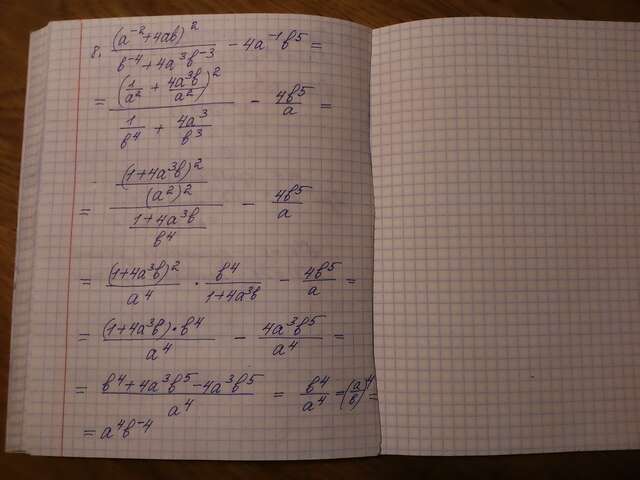 8. (a⁻²+4ab)² / (b⁻⁴+4a³b⁻³) − 4a⁻¹b⁵ =
= (1/a² + 4a³b/a²)² / (1/b⁴ + 4a³/b³) − 4b⁵/a =
= ((1+4a³b)²/(a²)²) / ((1+4a³b)/b⁴) − 4b⁵/a
= (1+4a³b)²/a⁴ · b⁴/(1+4a³b) − 4b⁵/a =
= (1+4a³b)·b⁴/a⁴ − 4a³b⁵/a⁴ =
= (b⁴+4a³b⁵−4a³b⁵)/a⁴ = b⁴/a⁴ = (a/b)⁴ =
= a⁴b⁻⁴